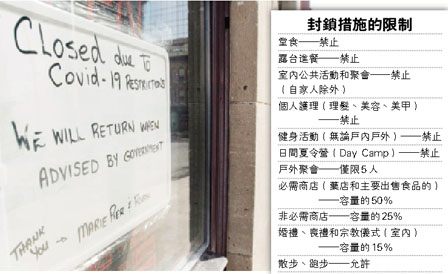 CLOSED due TO
COVID-19 RESTRICTIONS
WE WILL RETURN WHEN
ADVISED BY GOVERNMENT
THANK
YOU → MARIE PIER &
封鎖措施的限制
堂食——禁止
露台進餐——禁止
室內公共活動和聚會——禁止
（自家人除外）
個人護理（理髮、美容、美甲）
——禁止
健身活動（無論戶內戶外）——禁止
日間夏令營（Day Camp）——禁止
戶外聚會——僅限5人
必需商店（藥店和主要出售食品的）
——容量的50%
非必需商店——容量的25%
婚禮、喪禮和宗教儀式（室內）
——容量的15%
散步、跑步——允許